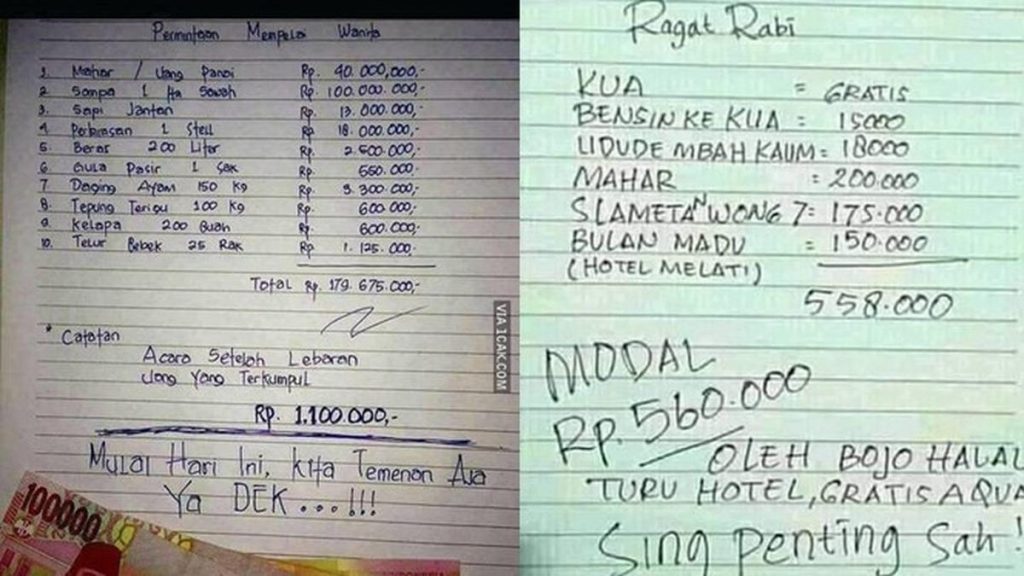 Permintaan Mempelai Wanita
1. Mahar / Uang Panai Rp. 40.000,000,-
2 Sompa 1 Ha Sawah Rp. 100.000.000,-
3. Sapi Jantan Rp. 13.000.000,-
4. Perhiasan 1 Stell Rp. 18.000.000,-
5. Beras 200 Liter Rp. 2.500.000,-
6 Gula Pasir 1 Sak Rp. 550.000,-
7 Daging Ayam 150 Kg Rp. 3.300.000,-
8. Tepung Terigu 100 Kg Rp. 600.000,-
9. Kelapa 200 Buah Rp. 600.000,-
10. Telur Bebek 25 Rak Rp 1.125.000,-
Total Rp. 179.675.000,-
* Catatan
Acara Setelah Lebaran
Uang Yang Terkumpul
Rp. 1.100.000,-
Mulai Hari Ini, Kita Temenan Aja
Ya DEK...!!!
100000
VIA 1CAK.COM
Ragat Rabi
KUA = GRATIS
BENSIN KE KUA = 15000
UDUDE MBAH KAUM = 18000
MAHAR = 200.000
SLAMETAN WONG 7 = 175.000
BULAN MADU = 150.000
(HOTEL MELATI)
558.000
MODAL
Rp. 560.000
OLEH BOJO HALAL
TURU HOTEL, GRATIS AQUA
Sing penting Sah!